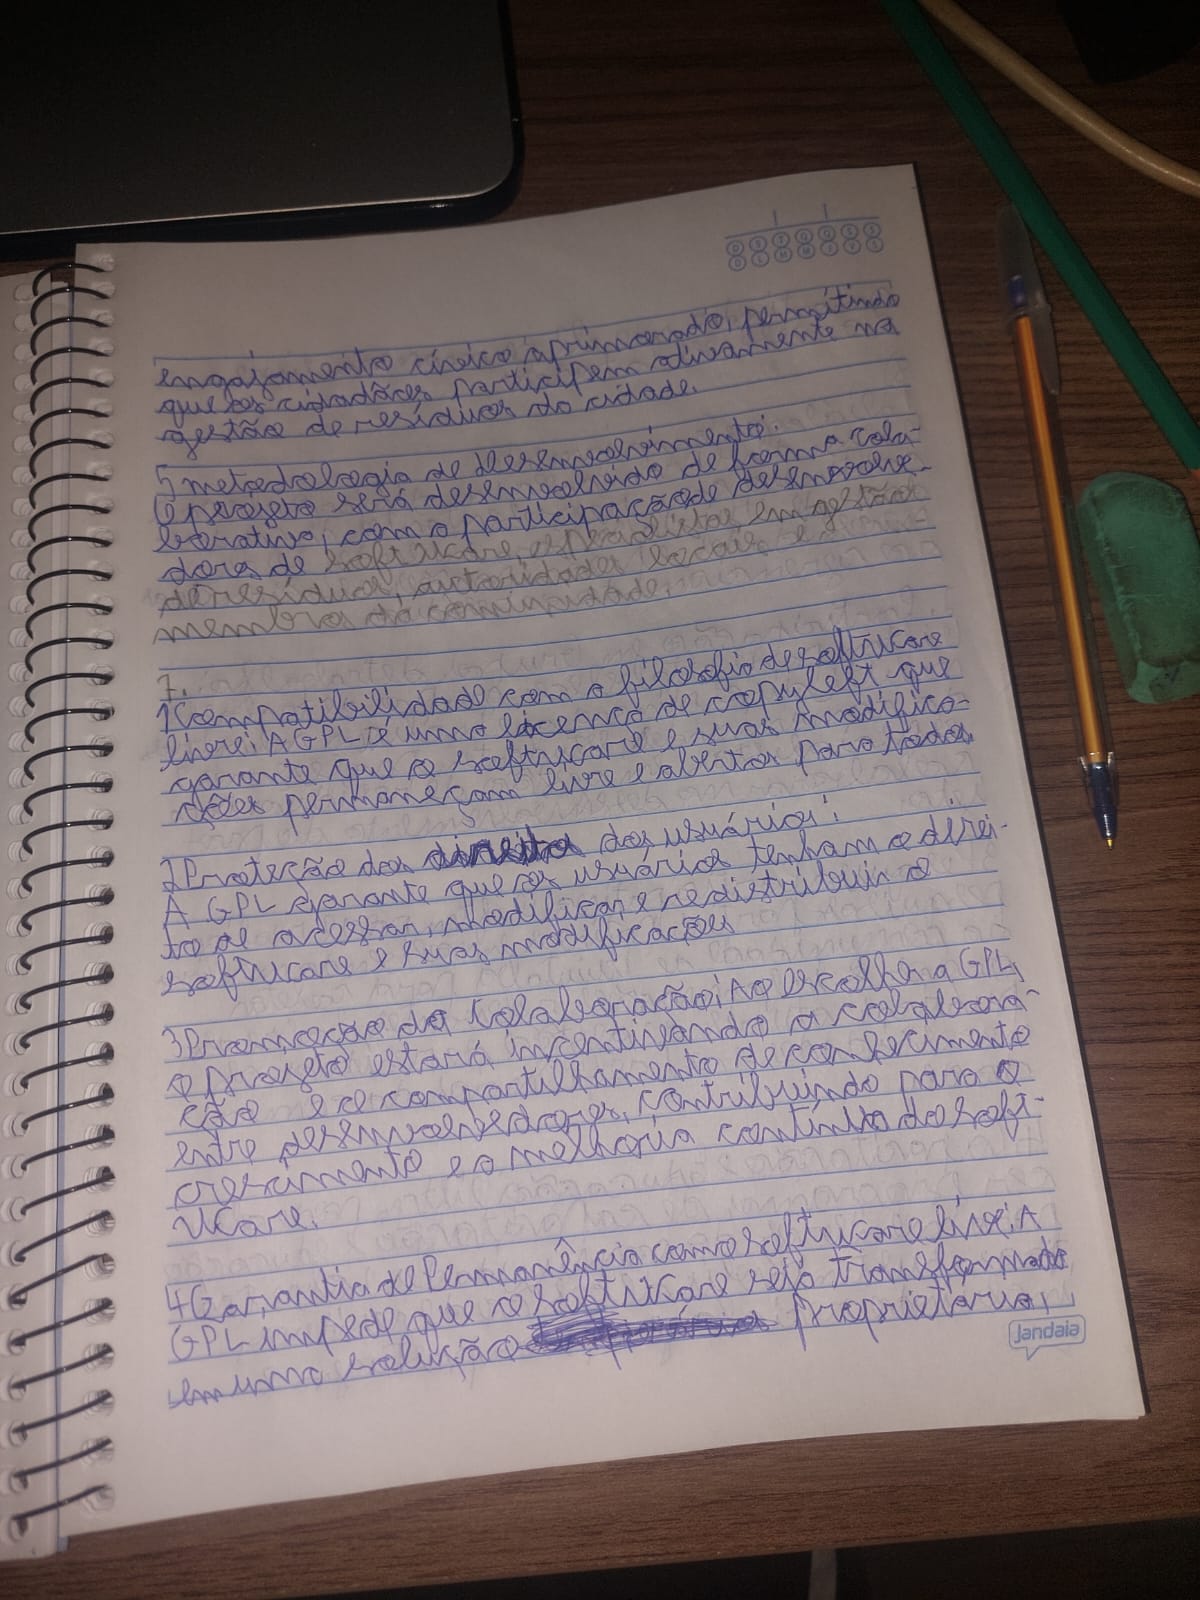 D S T Q Q S S
D L M M J V S
engajamento cívico aprimorado, permitindo
que os cidadãos participem ativamente na
gestão de resíduos da cidade.
5 metodologia de desenvolvimento:
O projeto será desenvolvido de forma cola-
borativa, com a participação de desenvolve-
dores de software, especialistas em gestão
de resíduos, autoridades locais e
membros da comunidade.
7.
1) Compatibilidade com a filosofia de software
livre: A GPL é uma licença de copyleft que
garante que o software e suas modifica-
ções permaneçam livre e abertos para todos.
2) Proteção dos direitos dos usuários:
A GPL garante que os usuários tenham o direi-
to de acessar, modificar e redistribuir o
software e suas modificações
3) Promoção da Colaboração: Ao escolher a GPL,
o projeto estará incentivando a colabora-
ção e o compartilhamento de conhecimento
entre desenvolvedores, contribuindo para o
crescimento e a melhoria contínua do soft-
ware.
4) Garantia de Permanência como software livre: A
GPL impede que o software seja transformado
em uma solução proprietária,
Jandaia